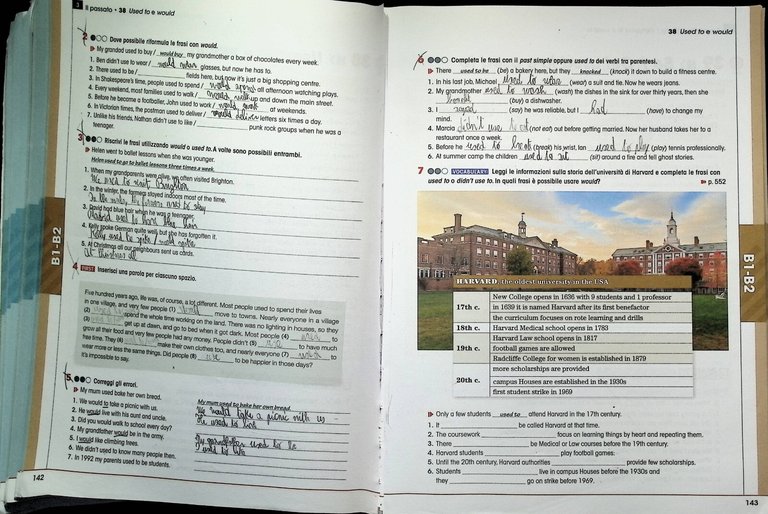 3 Il passato • 38 Used to e would
2 Dove possibile riformula le frasi con would.
My grandad used to buy / would buy my grandmother a box of chocolates every week.
1. Ben didn't use to wear / would wear glasses, but now he has to.
2. There used to be / fields here, but now it's just a big shopping centre.
3. In Shakespeare's time, people used to spend / would spend all afternoon watching plays.
4. Every weekend, most families used to walk / would walk up and down the main street.
5. Before he became a footballer, John used to work / would work at weekends.
6. In Victorian times, the postman used to deliver / would deliver letters six times a day.
7. Unlike his friends, Nathan didn't use to like / punk rock groups when he was a
teenager.
3 Riscrivi le frasi utilizzando would o used to. A volte sono possibili entrambi.
Helen went to ballet lessons when she was younger.
Helen used to go to ballet lessons three times a week.
1. When my grandparents were alive, we often visited Brighton.
We used to visit Brighton
2. In the winter, the farmers stayed indoors most of the time.
In the winter, the farmers used to stay
3. David had blue hair when he was a teenager.
David used to have blue hair
4. Kelly spoke German quite well, but she has forgotten it.
Kelly used to
5. At Christmas all our neighbours sent us cards.
At Christmas all
4 FIRST Inserisci una parola per ciascuno spazio.
Five hundred years ago, life was, of course, a lot different. Most people used to spend their lives
in one village, and very few people (1) would move to towns. Nearly everyone in a village
(2) spend the whole time working on the land. There was no lighting in houses, so they
(3) get up at dawn, and go to bed when it got dark. Most people (4) to
grow all their food and very few people had any money. People didn't (5) to have much
free time. They (6) make their own clothes too, and nearly everyone (7) to
wear more or less the same things. Did people (8) use to be happier in those days?
It's impossible to say.
5 Correggi gli errori.
My mum used bake her own bread. My mum used to bake her own bread.
1. We would to take a picnic with us. We would take a picnic with us
2. He would live with his aunt and uncle. He used to live
3. Did you would walk to school every day?
4. My grandfather would be in the army. My grandfather used to be
5. I would like climbing trees. I used to like
6. We didn't used to know many people then.
7. In 1992 my parents used to be students.
142
B1-B2
38 Used to e would
6 Completa le frasi con il past simple oppure used to dei verbi tra parentesi.
There used to be (be) a bakery here, but they knocked (knock) it down to build a fitness centre.
1. In his last job, Michael used to wear (wear) a suit and tie. Now he wears jeans.
2. My grandmother used to wash (wash) the dishes in the sink for over thirty years, then she
bought (buy) a dishwasher.
3. I (say) he was reliable, but I had (have) to change my
mind.
4. Marcia didn't use to eat (not eat) out before getting married. Now her husband takes her to a
restaurant once a week.
5. Before he used to break (break) his wrist, Ian used to play (play) tennis professionally.
6. At summer camp the children used to sit (sit) around a fire and tell ghost stories.
7 VOCABULARY Leggi le informazioni sulla storia dell'università di Harvard e completa le frasi con
used to o didn't use to. In quali frasi è possibile usare would? p. 552
HARVARD, the oldest university in the USA
17th c. New College opens in 1636 with 9 students and 1 professor
in 1639 it is named Harvard after its first benefactor
the curriculum focuses on rote learning and drills
18th c. Harvard Medical school opens in 1783
19th c. Harvard Law school opens in 1817
football games are allowed
Radcliffe College for women is established in 1879
20th c. more scholarships are provided
campus Houses are established in the 1930s
first student strike in 1969
Only a few students used to attend Harvard in the 17th century.
1. It be called Harvard at that time.
2. The coursework focus on learning things by heart and repeating them.
3. There be Medical or Law courses before the 19th century.
4. Harvard students play football games.
5. Until the 20th century, Harvard authorities provide few scholarships.
6. Students live in campus Houses before the 1930s and
they go on strike before 1969.
B1-B2
143